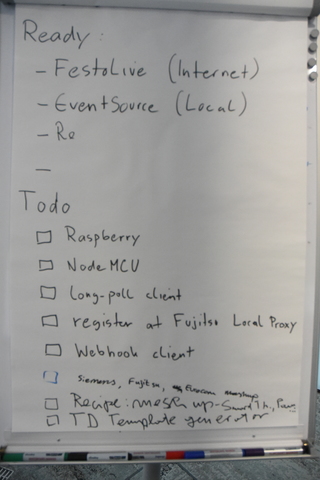 Ready:
- FestoLive (Internet)
- EventSource (Local)
- Re
-
Todo
Raspberry
NodeMCU
Long-poll client
register at Fujitsu Local Proxy
Webhook client
Siemens, Fujitsu, Eurecom mashup
Recipe: mesh up - Smart Th.,
TD Template generator